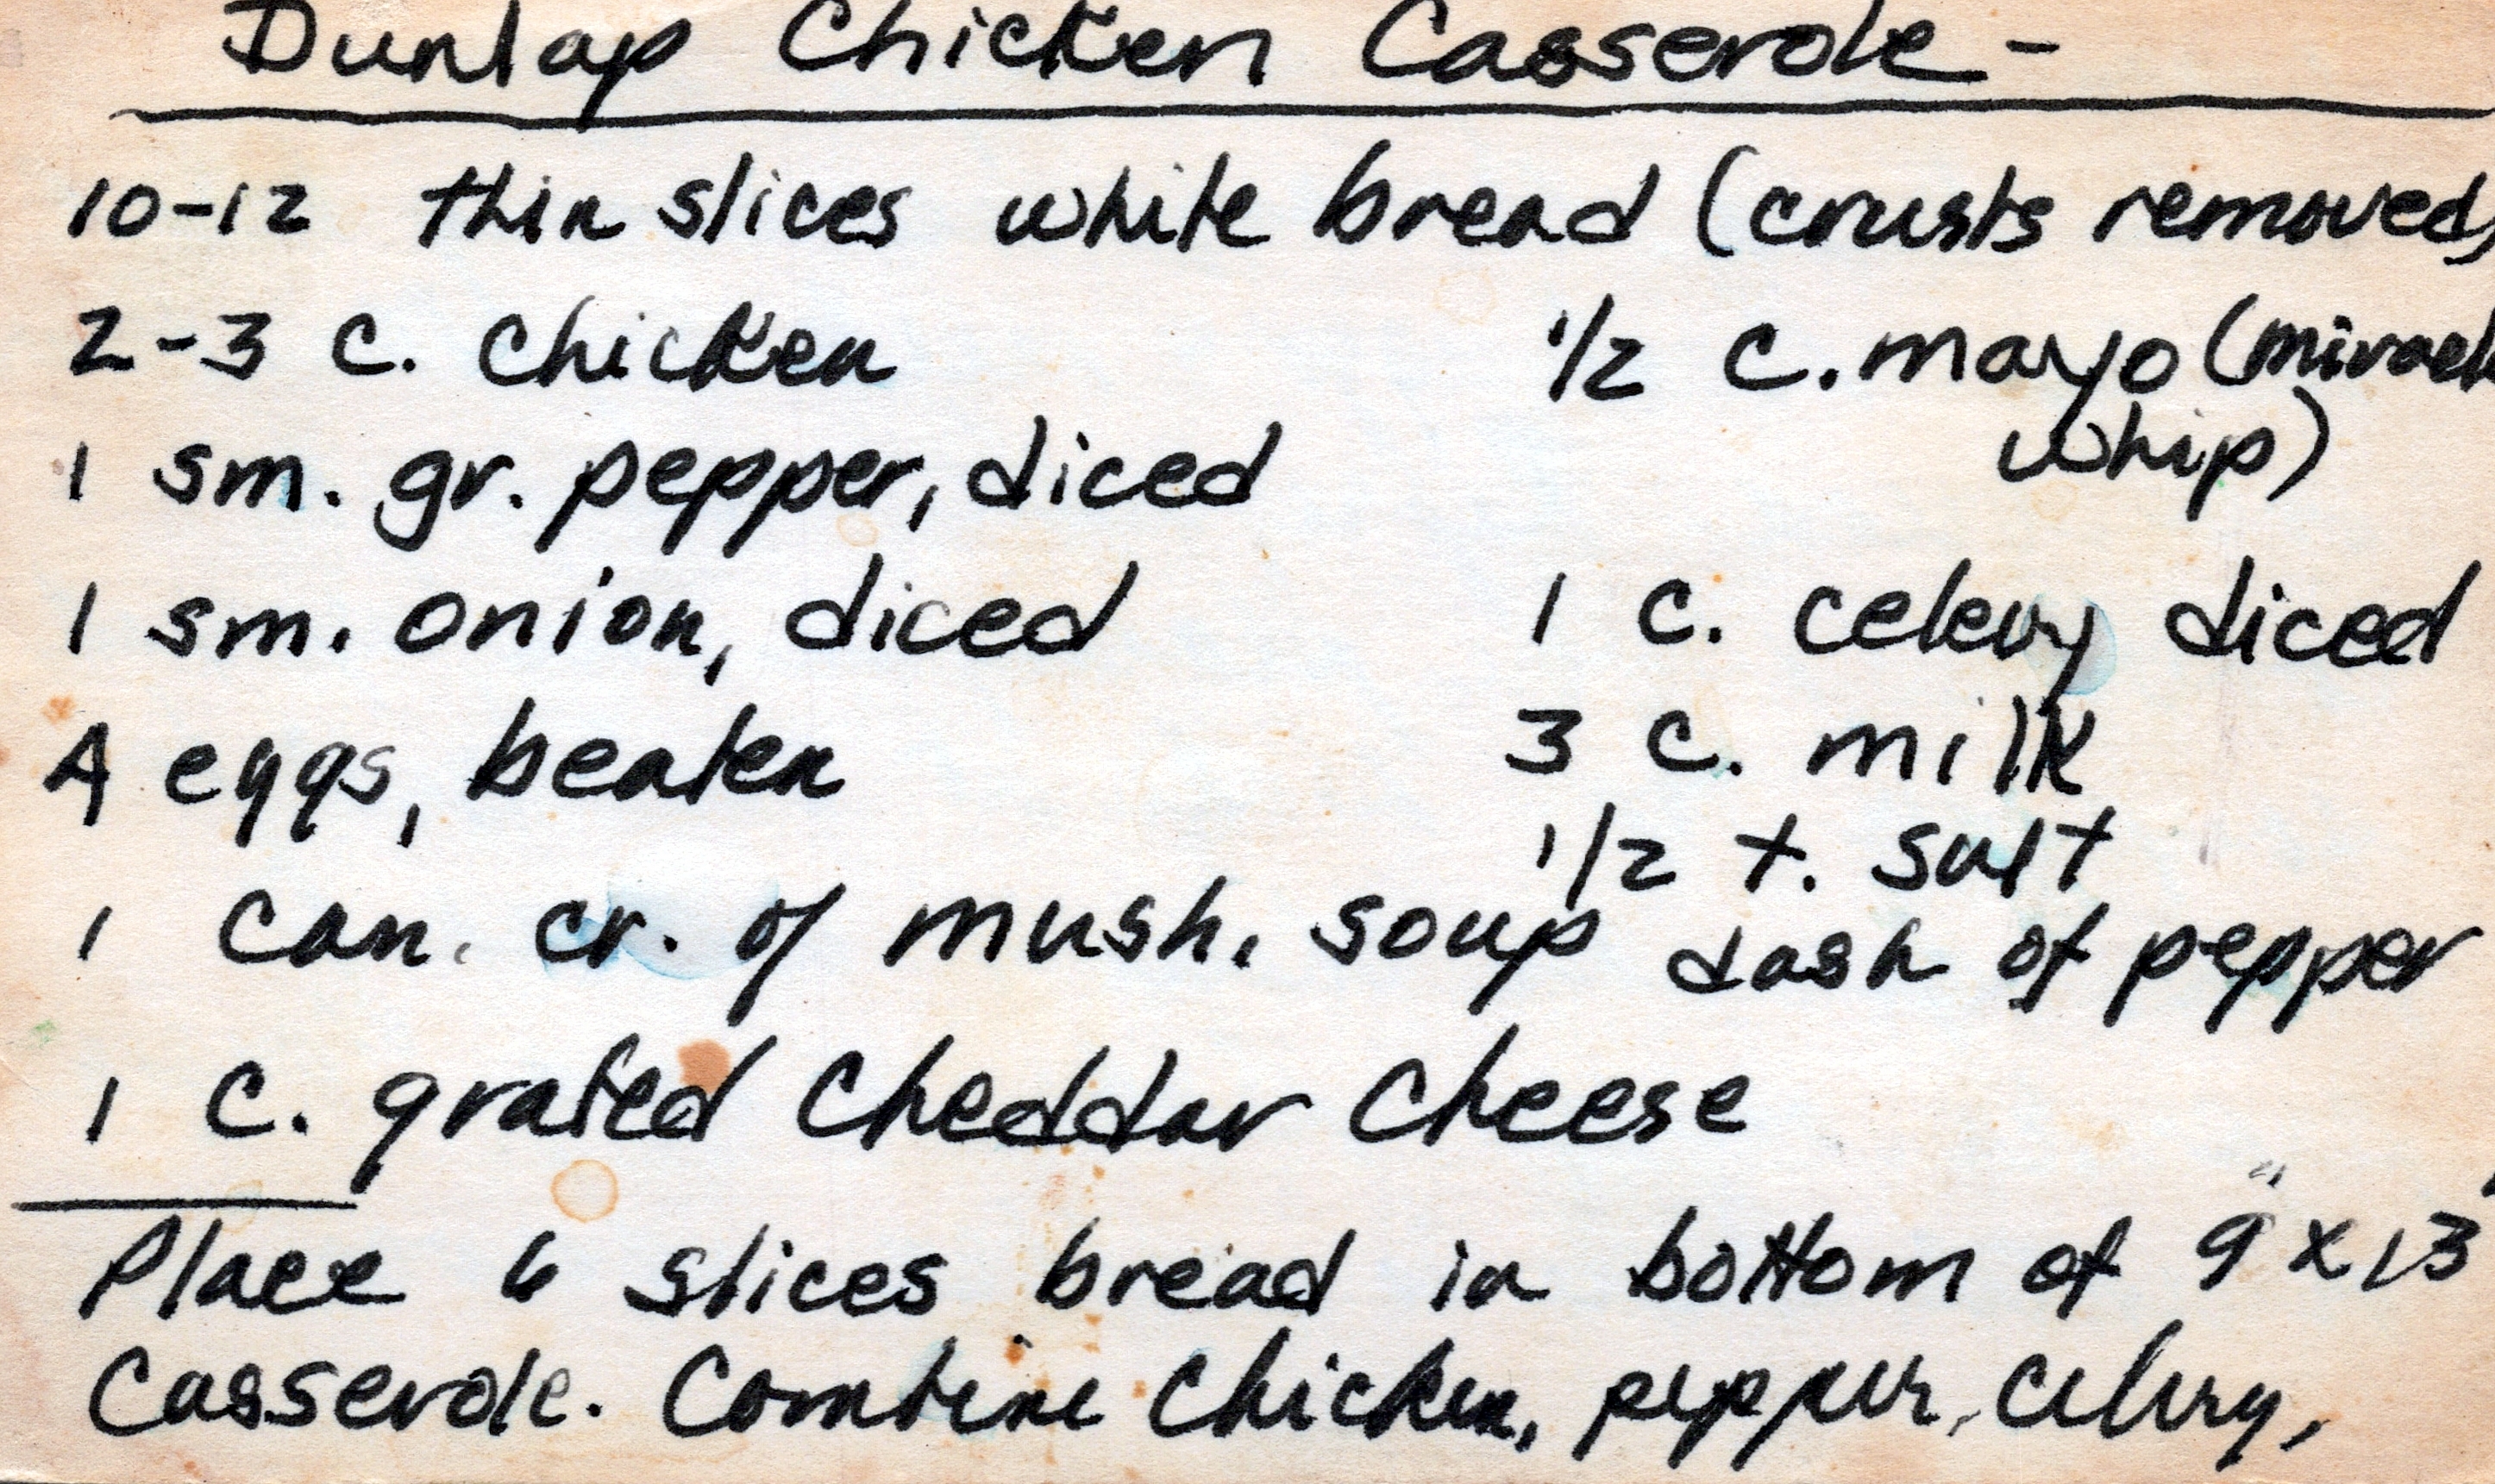 Dunlap Chicken Casserole -
10-12 thin slices white bread (crusts removed)
2-3 c. chicken 1/2 c. mayo (miracle
whip)
1 sm. gr. pepper, diced
1 sm. onion, diced 1 c. celery diced
4 eggs, beaten 3 c. milk
1/2 t. salt
1 can. cr. of mush. soup dash of pepper
1 c. grated cheddar cheese
Place 6 slices bread in bottom of 9" x 13"
casserole. Combine chicken, pepper, celery,